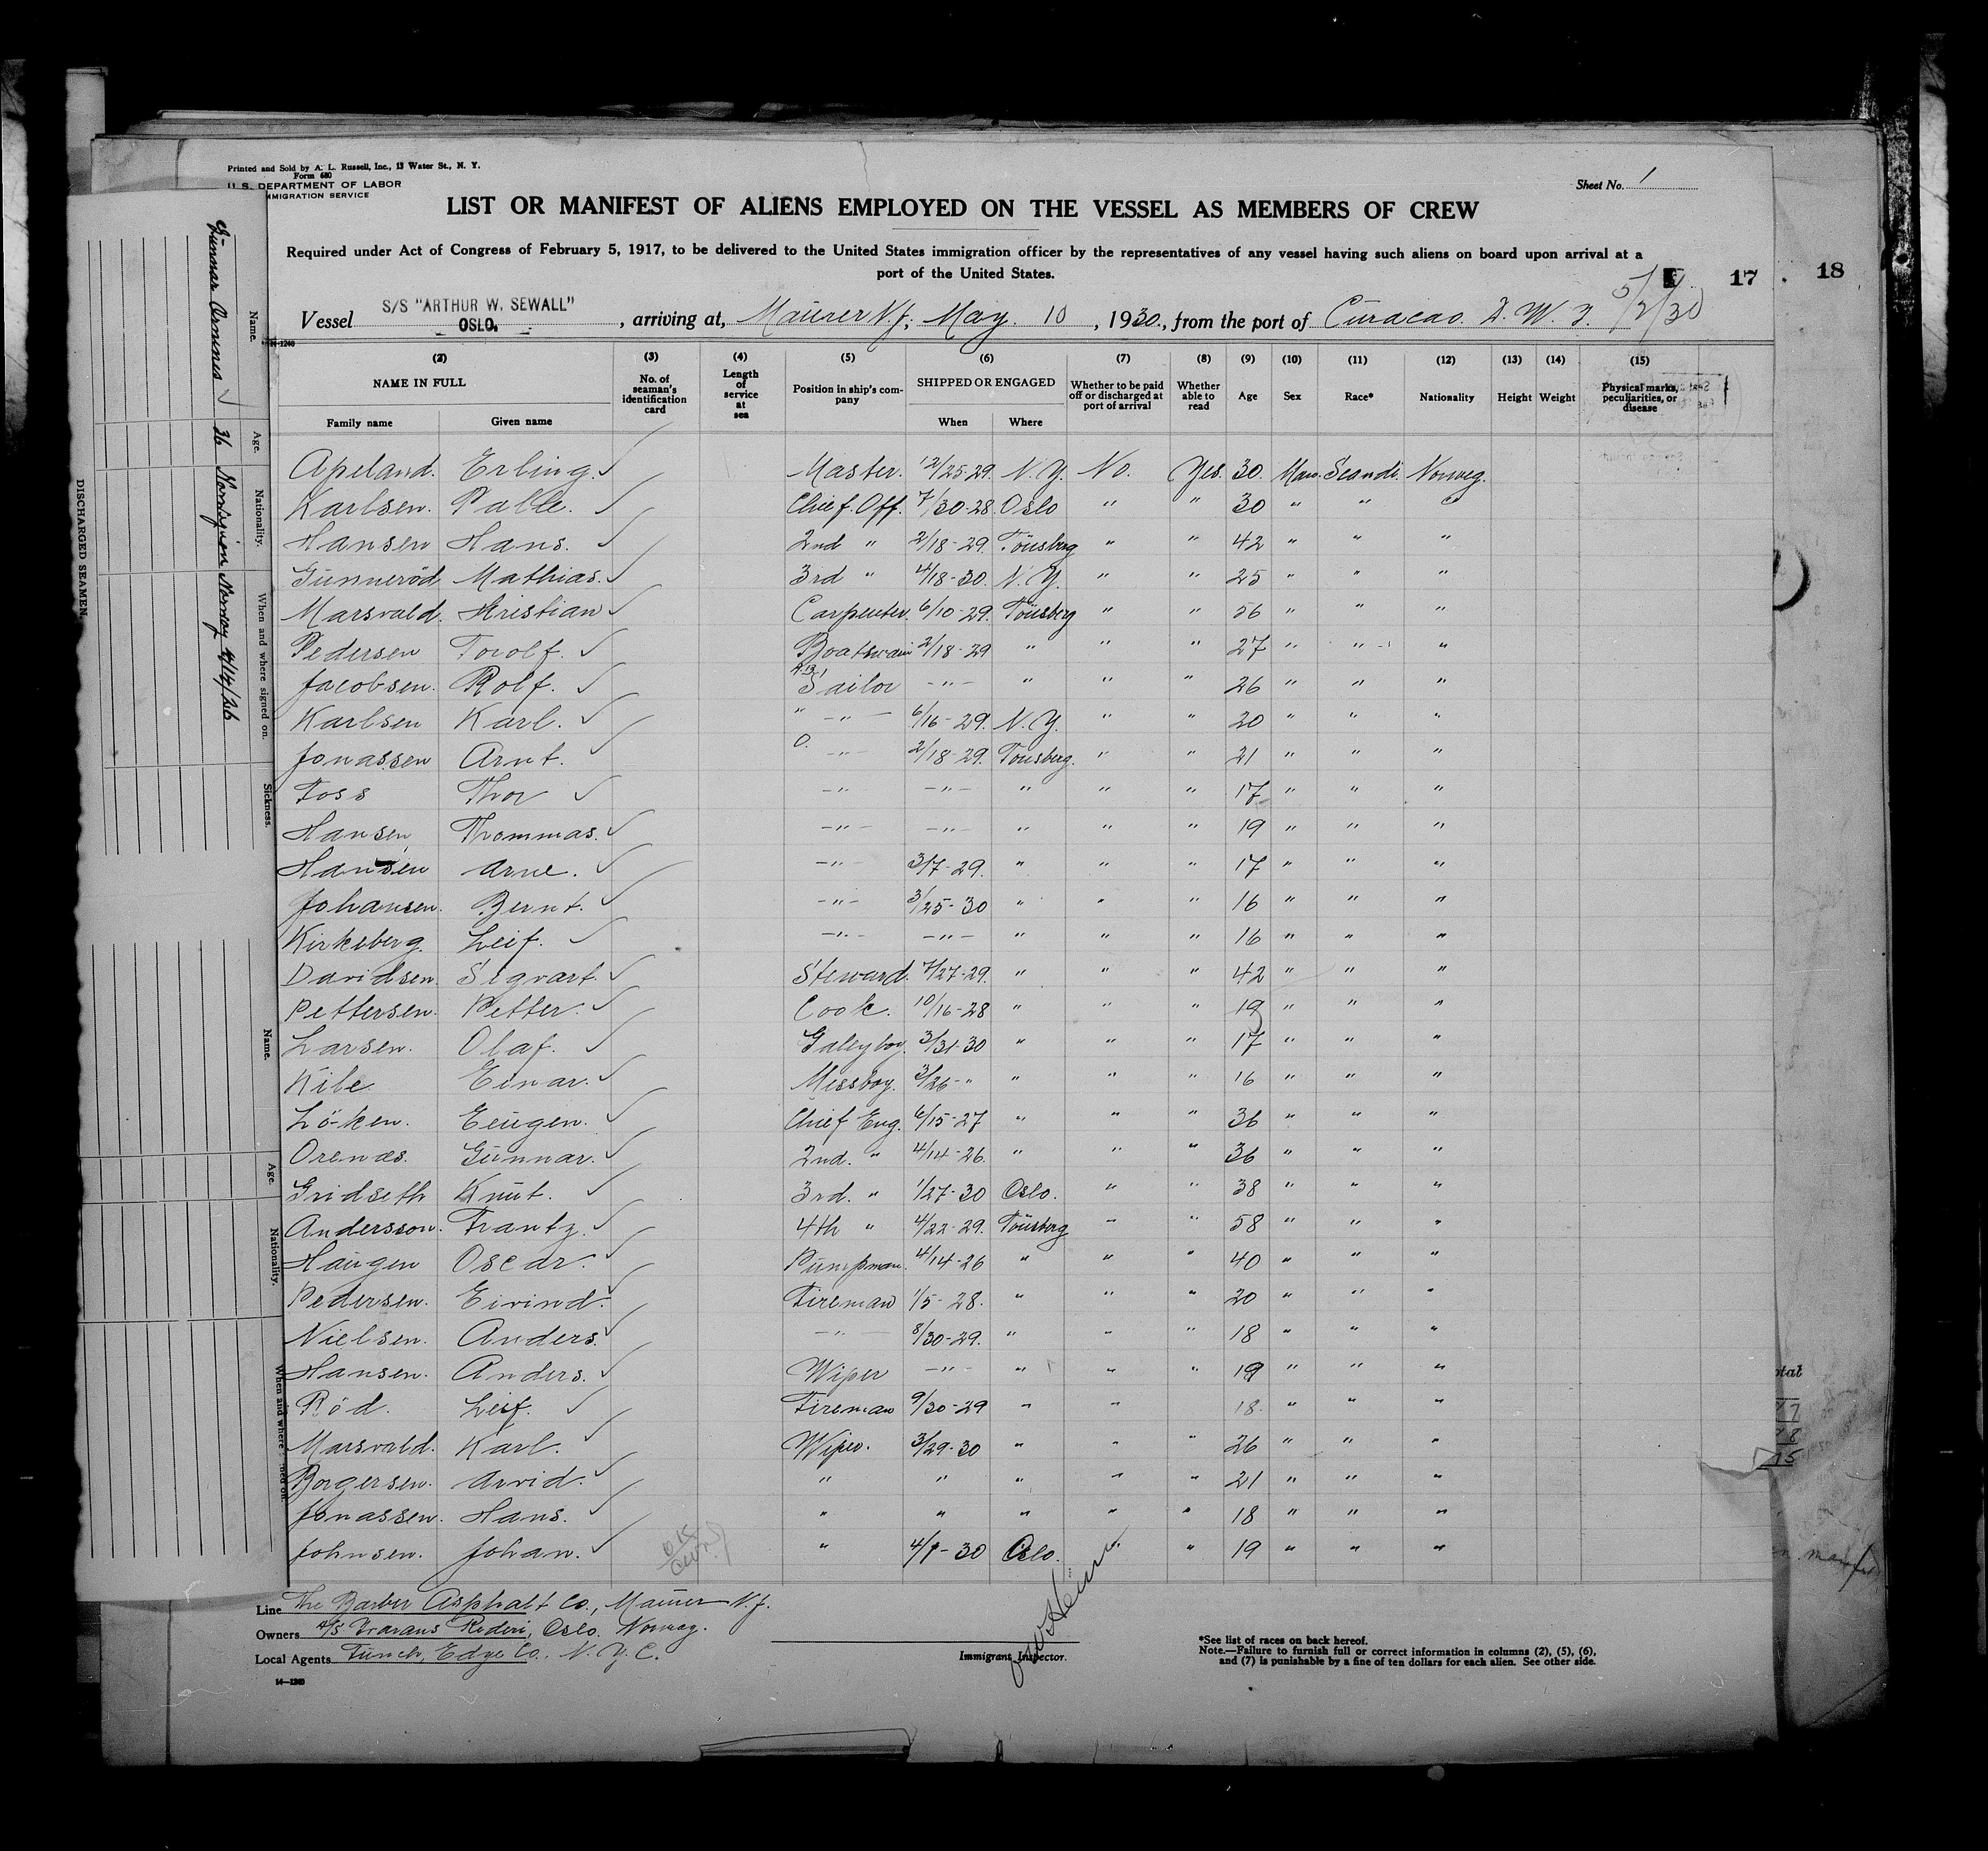 Printed and Sold by A. L. Russell, Inc., 13 Water St., N. Y.
Form 680
U. S. DEPARTMENT OF LABOR
MMIGRATION SERVICE
Sheet No. 1
LIST OR MANIFEST OF ALIENS EMPLOYED ON THE VESSEL AS MEMBERS OF CREW
Required under Act of Congress of February 5, 1917, to be delivered to the United States immigration officer by the representatives of any vessel having such aliens on board upon arrival at a
port of the United States.
5/2/30
17
18
Vessel S/S "ARTHUR W. SEWALL" OSLO. , arriving at, Maürer N.J; May. 10 , 1930., from the port of Curacao. D. W. I.
14-1240
(2) (3) (4) (5) (6) (7) (8) (9) (10) (11) (12) (13) (14) (15)
NAME IN FULL No. of seaman's identification card Length of service at sea Position in ship's company SHIPPED OR ENGAGED Whether to be paid off or discharged at port of arrival Whether able to read Age Sex Race* Nationality Height Weight Physical marks, peculiarities, or disease
Family name Given name When Where
Apeland. Erling. Master. 12/25-29. N. Y. No. Yes. 30. Man. Scandi. Norweg.
Karlsen. Palle. Chief. Off. 7/30-28. Oslo " " 30 " " "
Hansen Hans. 2nd " 2/18-29. Tönsberg " " 42 " " "
Günneröd Mathias. 3rd " 4/18-30. N. Y. " " 25 " " "
Marsvald. Kristian Carpenter. 6/10-29. Tönsberg " " 56 " " "
Pedersen Torolf. Boatswain 2/18-29 " " " 27 " " "
Jacobsen. Rolf. A.B. Sailor -"- " " " 26 " " "
Karlsen Karl. " -"- 6/16-29. N. Y. " " 20 " " "
Jonassen Arnt. O. -"- 2/18-29. Tönsberg. " " 21 " " "
Foss Thor -"- -"- " " " 17 " " "
Hansen Thommas. -"- -"- " " " 19 " " "
Hansen Arne. -"- 3/7-29. " " " 17 " " "
Johansen. Bernt. -"- 3/25-30 " " " 16 " " "
Kirkeberg. Leif. -"- -"- " " " 16 " " "
Davidsen. Sigvart. Steward. 7/27-29. " " " 42 " " "
Pettersen. Petter. Cook. 10/16-28 " " " 19 " " "
Larsen. Olaf. Galeyboy. 3/31-30 " " " 17 " " "
Kile Einar. Messboy. 3/26-" " " " 16 " " "
Löken. Eügen. Chief Eng. 6/15-27 " " " 36 " " "
Orenæs. Günnar. 2nd. " 4/14-26. " " " 36 " " "
Gridseth Knüt. 3rd. " 1/27-30 Oslo. " " 38 " " "
Andersson. Frantz. 4th " 4/22-29. Tönsberg " " 58 " " "
Haügen Oscar. Pümpman. 4/14-26 " " " 40 " " "
Pedersen. Eivind. Fireman 1/5-28. " " " 20 " " "
Nielsen. Anders. -"- 8/30-29. " " " 18 " " "
Hansen. Anders. Wiper -"- " " " 19 " " "
Röd. Leif. Fireman 9/30-29 " " " 18. " " "
Marsvald. Karl. Wiper. 3/29-30 " " " 26 " " "
Borgersen. Arvid. " " " " " 21 " " "
Jonassen. Hans. " " " " " 18 " " "
Johnsen. Johan. " 4/1-30 Oslo. " " 19 " " "
Line The Barber Asphalt Co., Maürer N.J.
Owners A/S Travans Rederi, Oslo. Norway.
Local Agents Fünch, Edye Co., N. Y. C.
14-1240
Immigrant Inspector.
*See list of races on back hereof.
Note.—Failure to furnish full or correct information in columns (2), (5), (6),
and (7) is punishable by a fine of ten dollars for each alien. See other side.
DISCHARGED SEAMEN.
Name. Age. Nationality. When and where signed on. Sickness.
Günnar Orennes 36 Norwegian Norway 4/14/26
Name. Age. Nationality. When and where